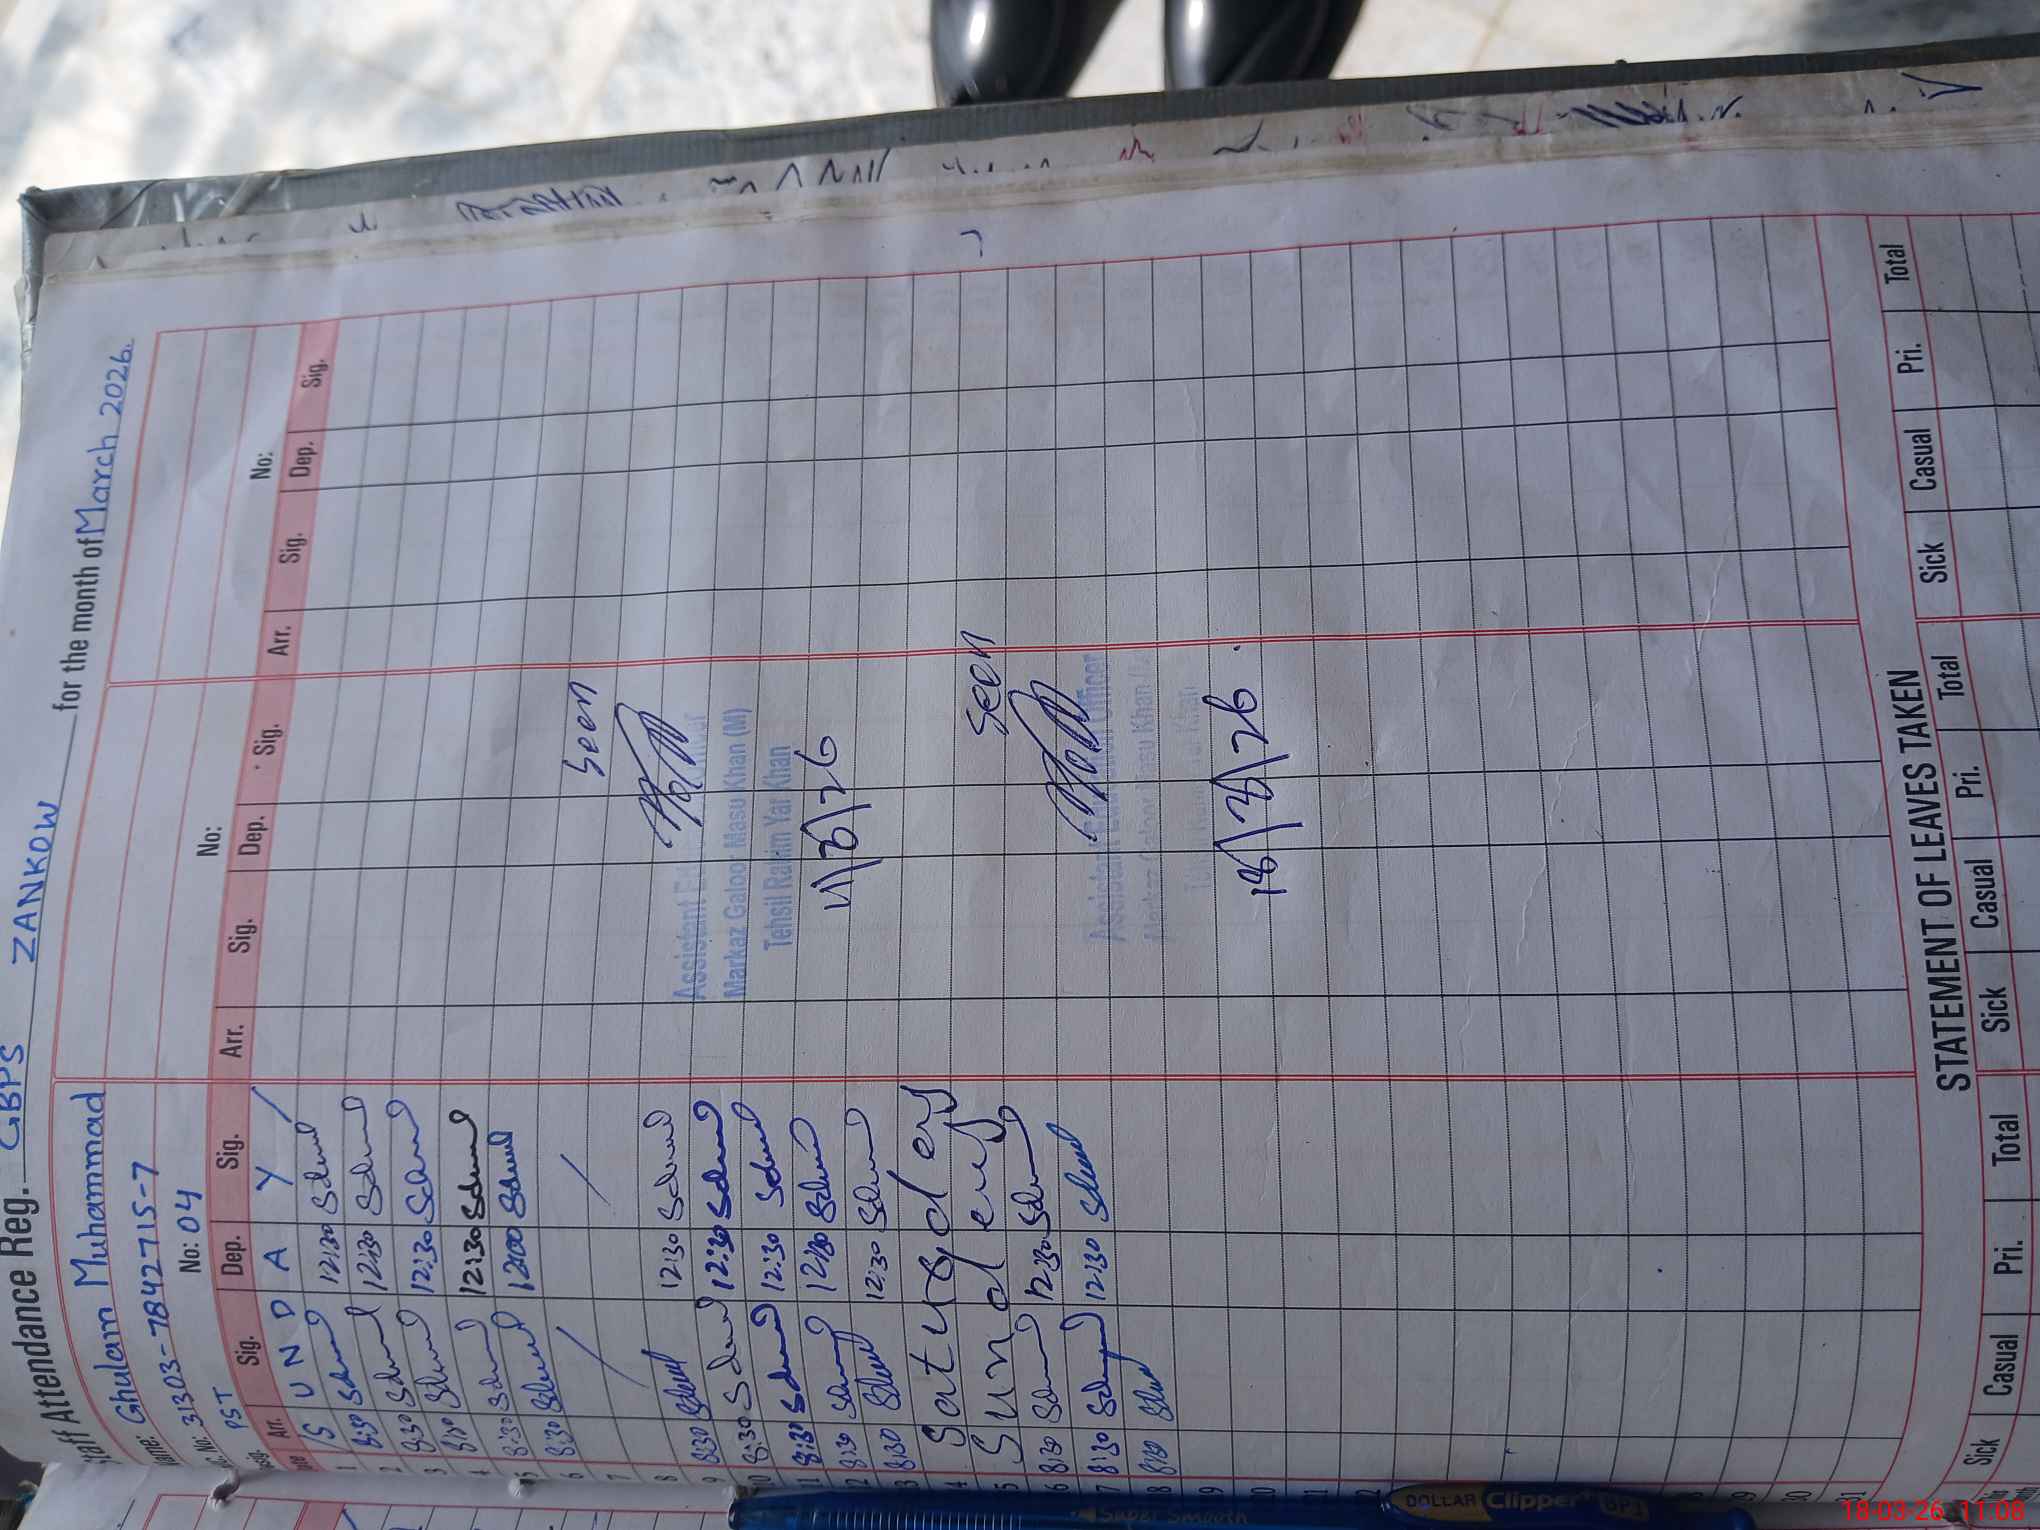 Staff Attendance Reg. GBPS ZANKOW for the month of March 2026.
Name: Ghulam Muhammad
C. No: 31303-7842715-7
Desig. PST No: 04 No: No:
Date Arr. Sig. Dep. Sig. Arr. Sig. Dep. Sig. Arr. Sig. Dep. Sig.
1 SUNDAY
2 8:30 12:30
3 8:30 12:30
4 8:30 12:30
5 8:30 12:30
6 8:30 12:00
7
8
9 8:30 12:30
10 8:30 12:30
11 8:30 12:30
12 8:30 12:30
13 8:30 12:30
14
15
16 8:30 12:30
17 8:30 12:30
18 8:30
19
20
21
22
29
30
31
Seen
Assistant Ed
Markaz Galoor Masu Khan (M)
Tehsil Rahim Yar Khan
11/3/26
Seen
Assistant Education Officer
Markaz Galoor Masu Khan
18/3/26.
STATEMENT OF LEAVES TAKEN
Sick Casual Pri. Total Sick Casual Pri. Total Sick Casual Pri. Total
DOLLAR Clipper BP3
Super Smooth
18-03-26 11:08